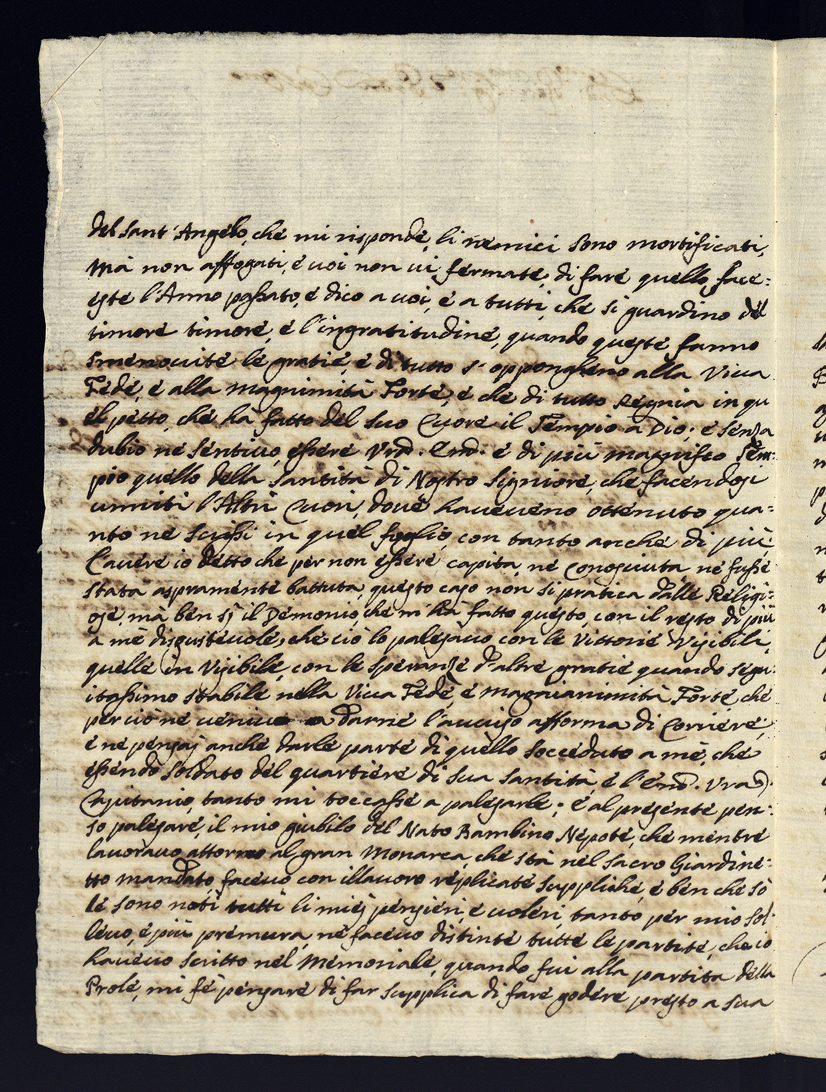 del Sant'Angelo, che mi risponde, li nemici sono mortificati,
mà non affogati, e voi non vi fermate, di fare quello, face:
este l'Anno passato, e dico a voi, e a tutti, che si guardino del
timore timore, e l'ingratitudine, quando queste fanno
le gratie, e di tutto s'oppongheno alla Viva
Fede, e alla magnimità Forte, e che di tutto Regnia in qu
el petto, che ha fatto del suo Cuore il Tempio a Dio: e senza
dubio ne sentivo essere Vrã. Emã. e di più magnifico Tem:
pio quello della Santità di Nostro Signiore, che facendosi
unniti l'Altri Cuori, dove haveveno ottenuto qua:
nto ne scrissi in quel foglio, con tanto anche di più,
l'avere io detto che per non essere capita, ne conosciuta, ne fusse
stata aspramente battuta, questo caso non si pratica dalle Religi:
ose, mà ben sì il Demonio, che m'ha fatto questo, con il resto di più
a me disgustevole, che ciò lo palesavo con le Vittorie Visibili,
quelle in Visibile, con le speranze d'altre gratie quando segu:
itassimo stabile nella Viva Fede, e magnianimità Forte, che
per ciò ne venivo a darne l'avviso afforma di Corriere,
e ne pensai anche darle parte di quello socceduto a me, che
essendo soldato del quartiere di sua santità, e l'Emã. Vrã
Capitanio, tanto mi toccasse a palesarle; e al presente pen:
so palesare, il mio giubilo del Nato Bambino Nepote, che mentre
lavoravo attorno al gran Monarca, che stà nel sacro Giardine:
tto mandato, facevo con illavoro replicate suppliche, e ben che so
le sono noti tutti li miei pensieri, e voleri, tanto, per mio sol:
levo, e più premura, ne facevo distinte tutte le partite, che io
havevo scritto nel Memoriale, quando fui alla partita della
Prole, mi fe pensare di far supplica di fare godere presto a sua